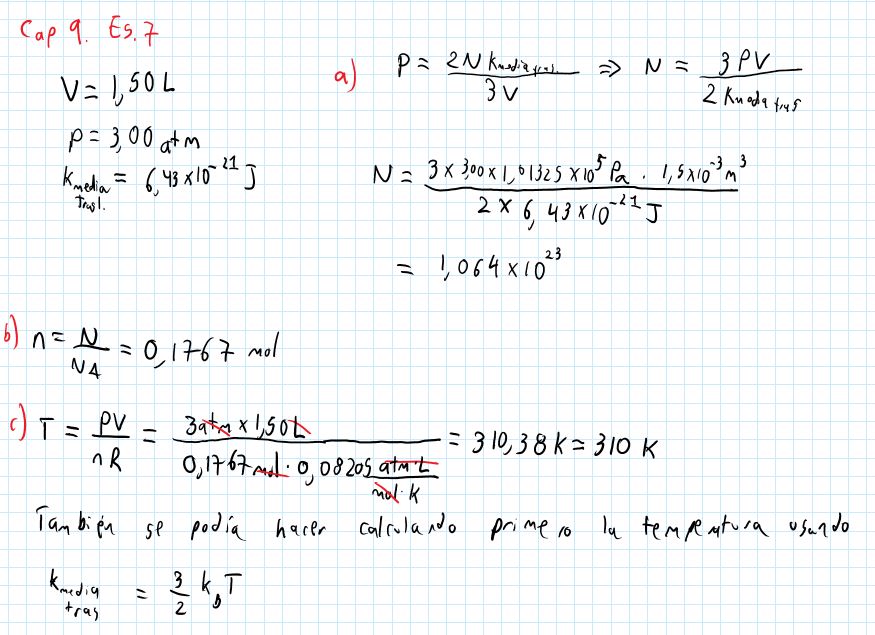 Cap 9. Es. 7
V = 1,50 L
P = 3,00 atm
K media trasl. = 6,43 × 10^-21 J
a) P = 2 N K media tras. / 3 V ⇒ N = 3 PV / 2 K media tras
N = 3 × 3,00 × 1,01325 × 10^5 Pa · 1,5 × 10^-3 m^3 / 2 × 6,43 × 10^-21 J
= 1,064 × 10^23
b) n = N / NA = 0,1767 mol
c) T = PV / nR = 3 atm × 1,50 L / 0,1767 mol · 0,08205 atm·L / mol·K = 310,38 K = 310 K
También se podía hacer calculando primero la temperatura usando
K media tras = 3/2 k_b T